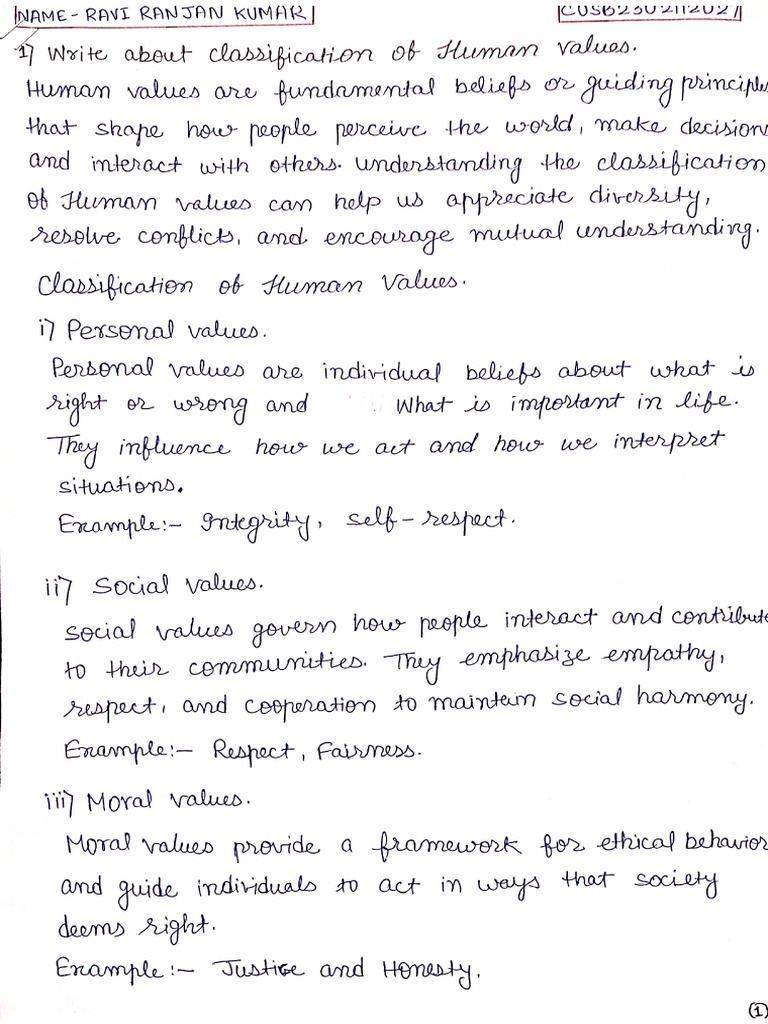 NAME - RAVI RANJAN KUMAR
CUSB2302112027
1) Write about classification of Human values.
Human values are fundamental beliefs or guiding principles
that shape how people perceive the world, make decision
and interact with others. understanding the classification
of Human values can help us appreciate diversity,
resolve conflicts, and encourage mutual understanding.
Classification of Human Values.
i) Personal values.
Personal values are individual beliefs about what is
right or wrong and What is important in life.
They influence how we act and how we interpret
situations.
Example:- Integrity, self-respect.
ii) Social values.
Social values govern how people interact and contribute
to their communities. They emphasize empathy,
respect, and cooperation to maintain social harmony.
Example:- Respect, Fairness.
iii) Moral values.
Moral values provide a framework for ethical behavior
and guide individuals to act in ways that society
deems right.
Example:- Justice and Honesty.
(1)